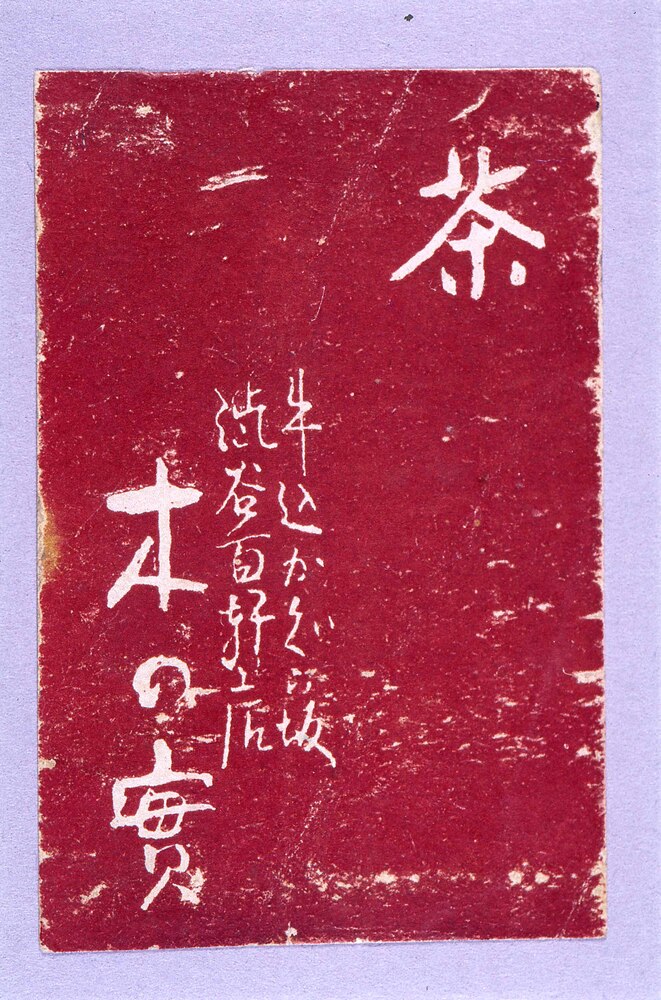 茶
牛込かぐら坂
渋谷百軒店
木の實